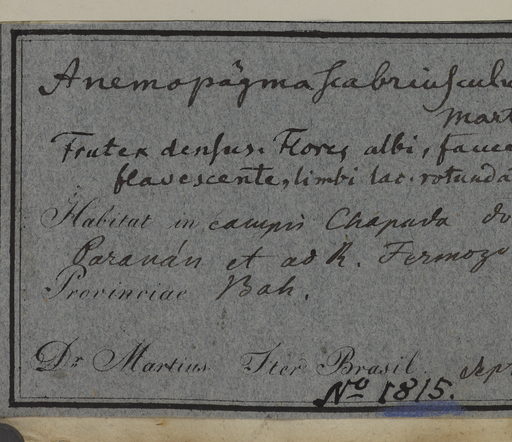 Anemopægma scabriusculu
Mart
Frutex densus. Flores albi, fauce
flavescente, limbi lac. rotunda
Habitat in campis Chapada do
Paranán et ad R. Formozo
Provinciae Bah.
Dr. Martius Iter Brasil. Sept
No 1815.